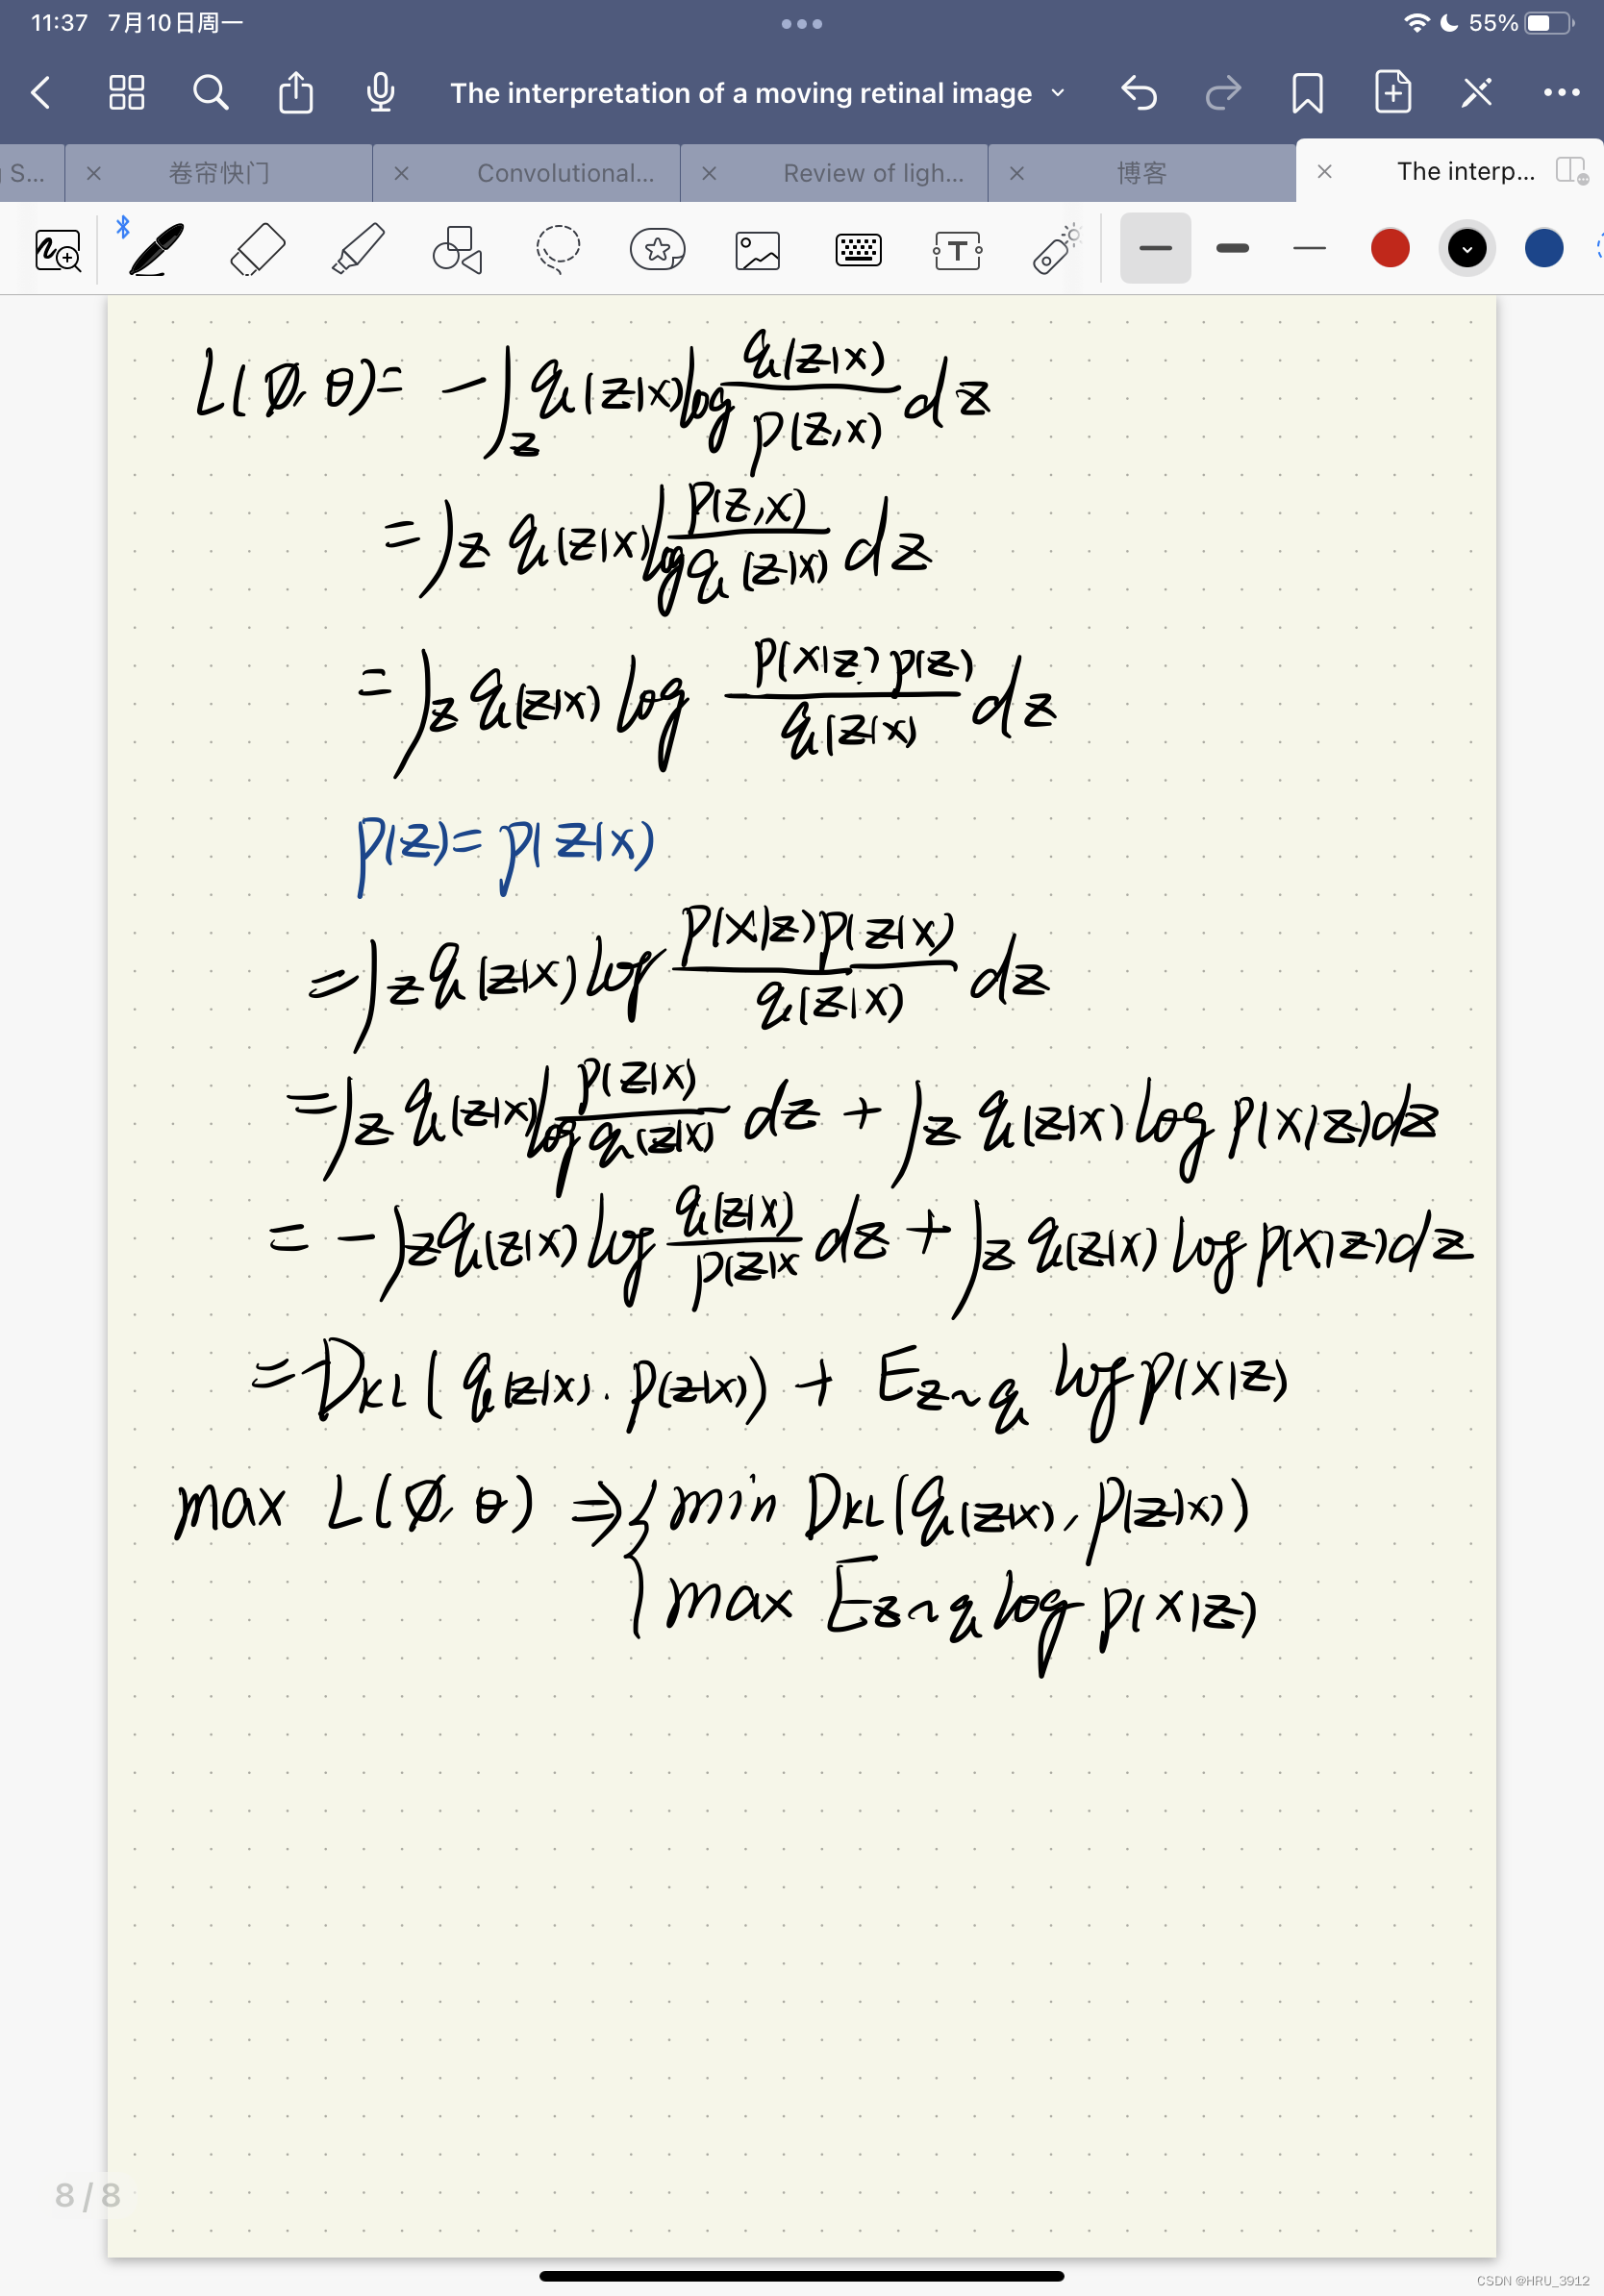 11:37 7月10日周一 55%
The interpretation of a moving retinal image
S... 卷帘快门 Convolutional... Review of ligh... 博客 The interp...
L(∅, θ) = -∫_z q(z|x) log q(z|x)/p(z,x) dz
= ∫_z q(z|x) log p(z,x)/q(z|x) dz
= ∫_z q(z|x) log p(x|z) p(z)/q(z|x) dz
p(z) = p(z|x)
= ∫_z q(z|x) log p(x|z) p(z|x)/q(z|x) dz
= ∫_z q(z|x) log p(z|x)/q(z|x) dz + ∫_z q(z|x) log p(x|z) dz
= -∫_z q(z|x) log q(z|x)/p(z|x dz + ∫_z q(z|x) log p(x|z) dz
= -D_KL(q(z|x), p(z|x)) + E_z~q log p(x|z)
max L(∅, θ) ⇒ { min D_KL(q(z|x), p(z|x))
max E_z~q log p(x|z)
8/8
CSDN @HRU_3912